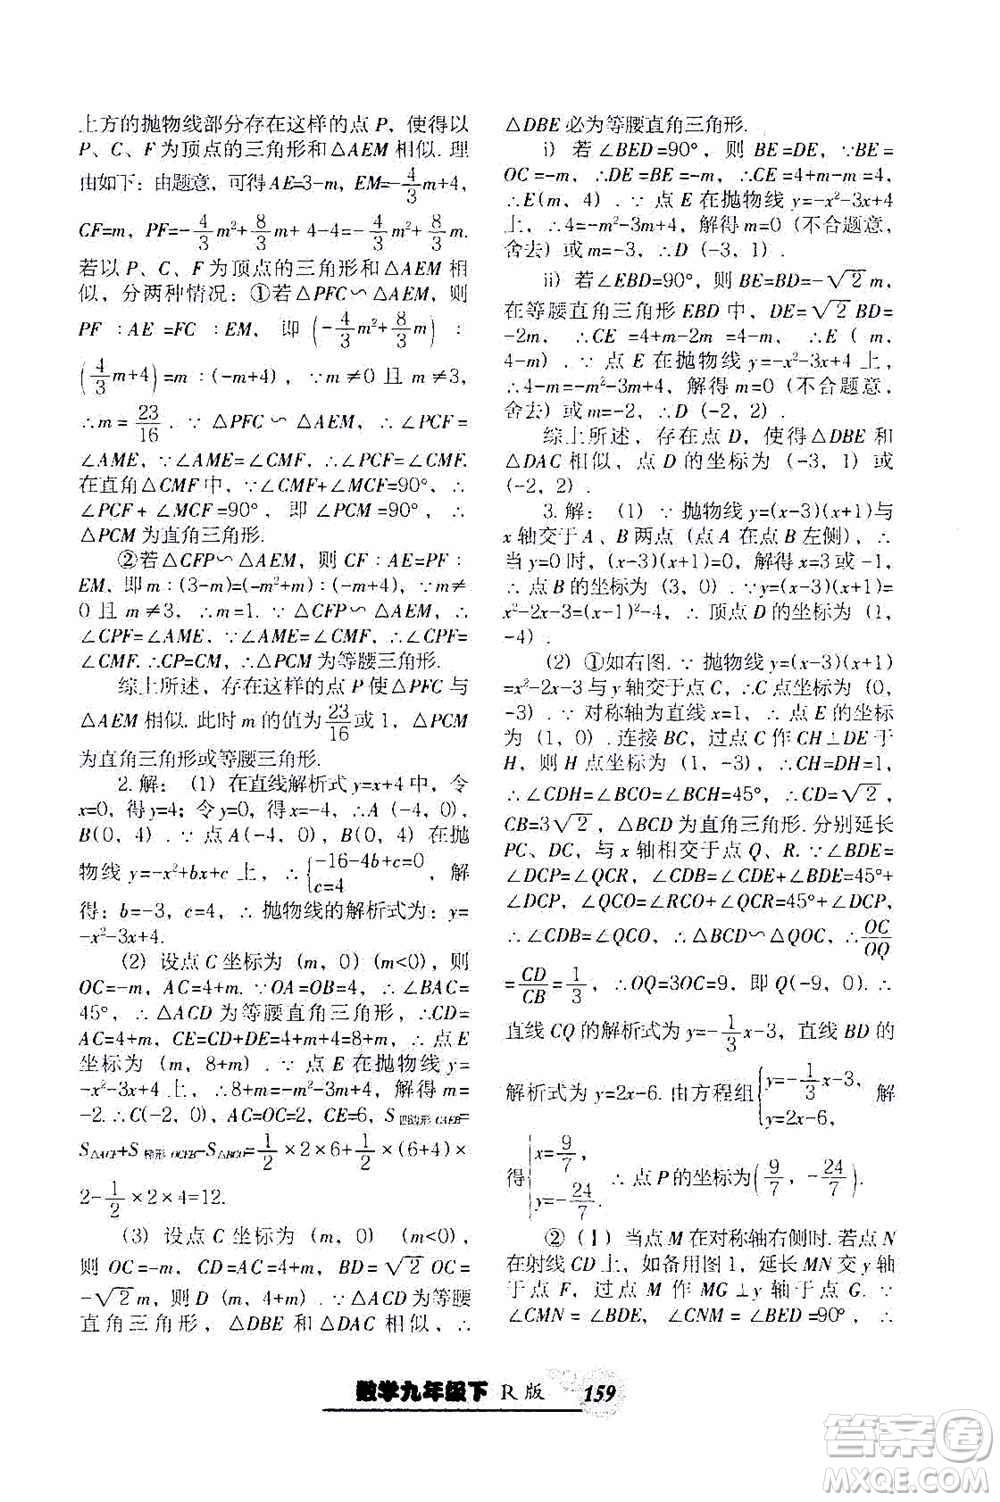 上方的抛物线部分存在这样的点 P, 使得以
P、C、F 为顶点的三角形和△AEM 相似. 理
由如下: 由题意, 可得 AE=3-m, EM=-4/3m+4,
CF=m, PF=-4/3m²+8/3m+4-4=-4/3m²+8/3m.
若以 P、C、F 为顶点的三角形和△AEM 相
似, 分两种情况: ①若△PFC∽△AEM, 则
PF:AE=FC:EM, 即(-4/3m²+8/3m):
(4/3m+4)=m:(-m+4), ∵m≠0 且 m≠3,
∴m=23/16. ∵△PFC∽△AEM, ∴∠PFC=
∠AME, ∵∠AME=∠CMF, ∴∠PCF=∠CMF.
在直角△CMF 中, ∵∠CMF+∠MCF=90°, ∴
∠PCF+∠MCF=90°, 即∠PCM=90°, ∴
△PCM 为直角三角形.
②若△CFP∽△AEM, 则 CF:AE=PF:
EM, 即 m:(3-m)=(-m²+m):(-m+4), ∵m≠
0 且 m≠3, ∴m=1. ∵△CFP∽△AEM, ∴
∠CPF=∠AME, ∵∠AME=∠CMF, ∴∠CPF=
∠CMF. ∴CP=CM, ∴△PCM 为等腰三角形.
综上所述, 存在这样的点 P 使△PFC 与
△AEM 相似. 此时 m 的值为23/16或 1, △PCM
为直角三角形或等腰三角形.
2.解: (1) 在直线解析式 y=x+4 中, 令
x=0, 得 y=4; 令 y=0, 得 x=-4, ∴A(-4, 0),
B(0, 4). ∵点 A(-4, 0), B(0, 4) 在抛
物线 y=-x²+bx+c 上, ∴{-16-4b+c=0 c=4, 解
得: b=-3, c=4, ∴抛物线的解析式为: y=
-x²-3x+4.
(2) 设点 C 坐标为 (m, 0)(m<0), 则
OC=-m, AC=4+m. ∵OA=OB=4, ∴∠BAC=
45°, ∴△ACD 为等腰直角三角形, ∴CD=
AC=4+m, ∴CE=CD+DE=4+m+4=8+m, ∴点 E
坐标为 (m, 8+m). ∵点 E 在抛物线 y=
-x²-3x+4 上, ∴8+m=-m²-3m+4, 解得 m=
-2. ∴C(-2, 0), AC=OC=2, CE=6, S四边形CAEB=
S△ACE+S梯形OCEB-S△BCO=1/2×2×6+1/2×(6+4)×
2-1/2×2×4=12.
(3) 设点 C 坐标为 (m, 0) (m<0),
则 OC=-m, CD=AC=4+m, BD=√2 OC=
-√2 m, 则 D(m, 4+m). ∵△ACD 为等腰
直角三角形, △DBE 和△DAC 相似, ∴
△DBE 必为等腰直角三角形.
i) 若∠BED=90°, 则 BE=DE, ∵BE=
OC=-m, ∴DE=BE=-m, ∴CE=4+m-m=4,
∴E(m, 4). ∵点 E 在抛物线 y=-x²-3x+4
上, ∴4=-m²-3m+4, 解得 m=0 (不合题意,
舍去) 或 m=-3, ∴D(-3, 1).
ii) 若∠EBD=90°, 则 BE=BD=-√2 m,
在等腰直角三角形 EBD 中, DE=√2 BD=
-2m, ∴CE=4+m-2m=4-m, ∴E(m,
4-m). ∵点 E 在抛物线 y=-x²-3x+4 上,
∴4-m=-m²-3m+4, 解得 m=0 (不合题意,
舍去) 或 m=-2, ∴D(-2, 2).
综上所述, 存在点 D, 使得△DBE 和
△DAC 相似, 点 D 的坐标为 (-3, 1) 或
(-2, 2).
3.解: (1) ∵抛物线 y=(x-3)(x+1)与
x 轴交于 A、B 两点 (点 A 在点 B 左侧), ∴
当 y=0 时, (x-3)(x+1)=0, 解得 x=3 或 -1,
∴点 B 的坐标为 (3, 0). ∵y=(x-3)(x+1)=
x²-2x-3=(x-1)²-4, ∴顶点 D 的坐标为 (1,
-4).
(2) ①如右图. ∵抛物线 y=(x-3)(x+1)
=x²-2x-3 与 y 轴交于点 C, ∴C 点坐标为 (0,
-3). ∵对称轴为直线 x=1, ∴点 E 的坐标
为 (1, 0). 连接 BC, 过点 C 作 CH⊥DE 于
H, 则 H 点坐标为 (1, -3), ∴CH=DH=1,
∴∠CDH=∠BCO=∠BCH=45°, ∴CD=√2,
CB=3√2, △BCD 为直角三角形. 分别延长
PC、DC, 与 x 轴相交于点 Q、R. ∵∠BDE=
∠DCP, ∠CDB=∠CDE+∠BDE=45°+
∠DCP, ∠QCO=∠RCO+∠QCR=45°+∠DCP,
∴∠CDB=∠QCO, ∴△BCD∽△QOC, ∴OC/OQ
=CD/CB=1/3, ∴OQ=3OC=9, 即 Q(-9, 0). ∴
直线 CQ 的解析式为 y=-1/3x-3, 直线 BD 的
解析式为 y=2x-6. 由方程组{y=-1/3x-3, y=2x-6, 解
得{x=9/7 y=-24/7. ∴点 P 的坐标为(9/7, -24/7).
②(Ⅰ) 当点 M 在对称轴右侧时. 若点 N
在射线 CD 上, 如备用图 1, 延长 MN 交 y 轴
于点 F, 过点 M 作 MG⊥y 轴于点 G. ∵
∠CMN=∠BDE, ∠CNM=∠BED=90°, ∴
数学九年级下 R 版 159
答案圈
MXQE.COM